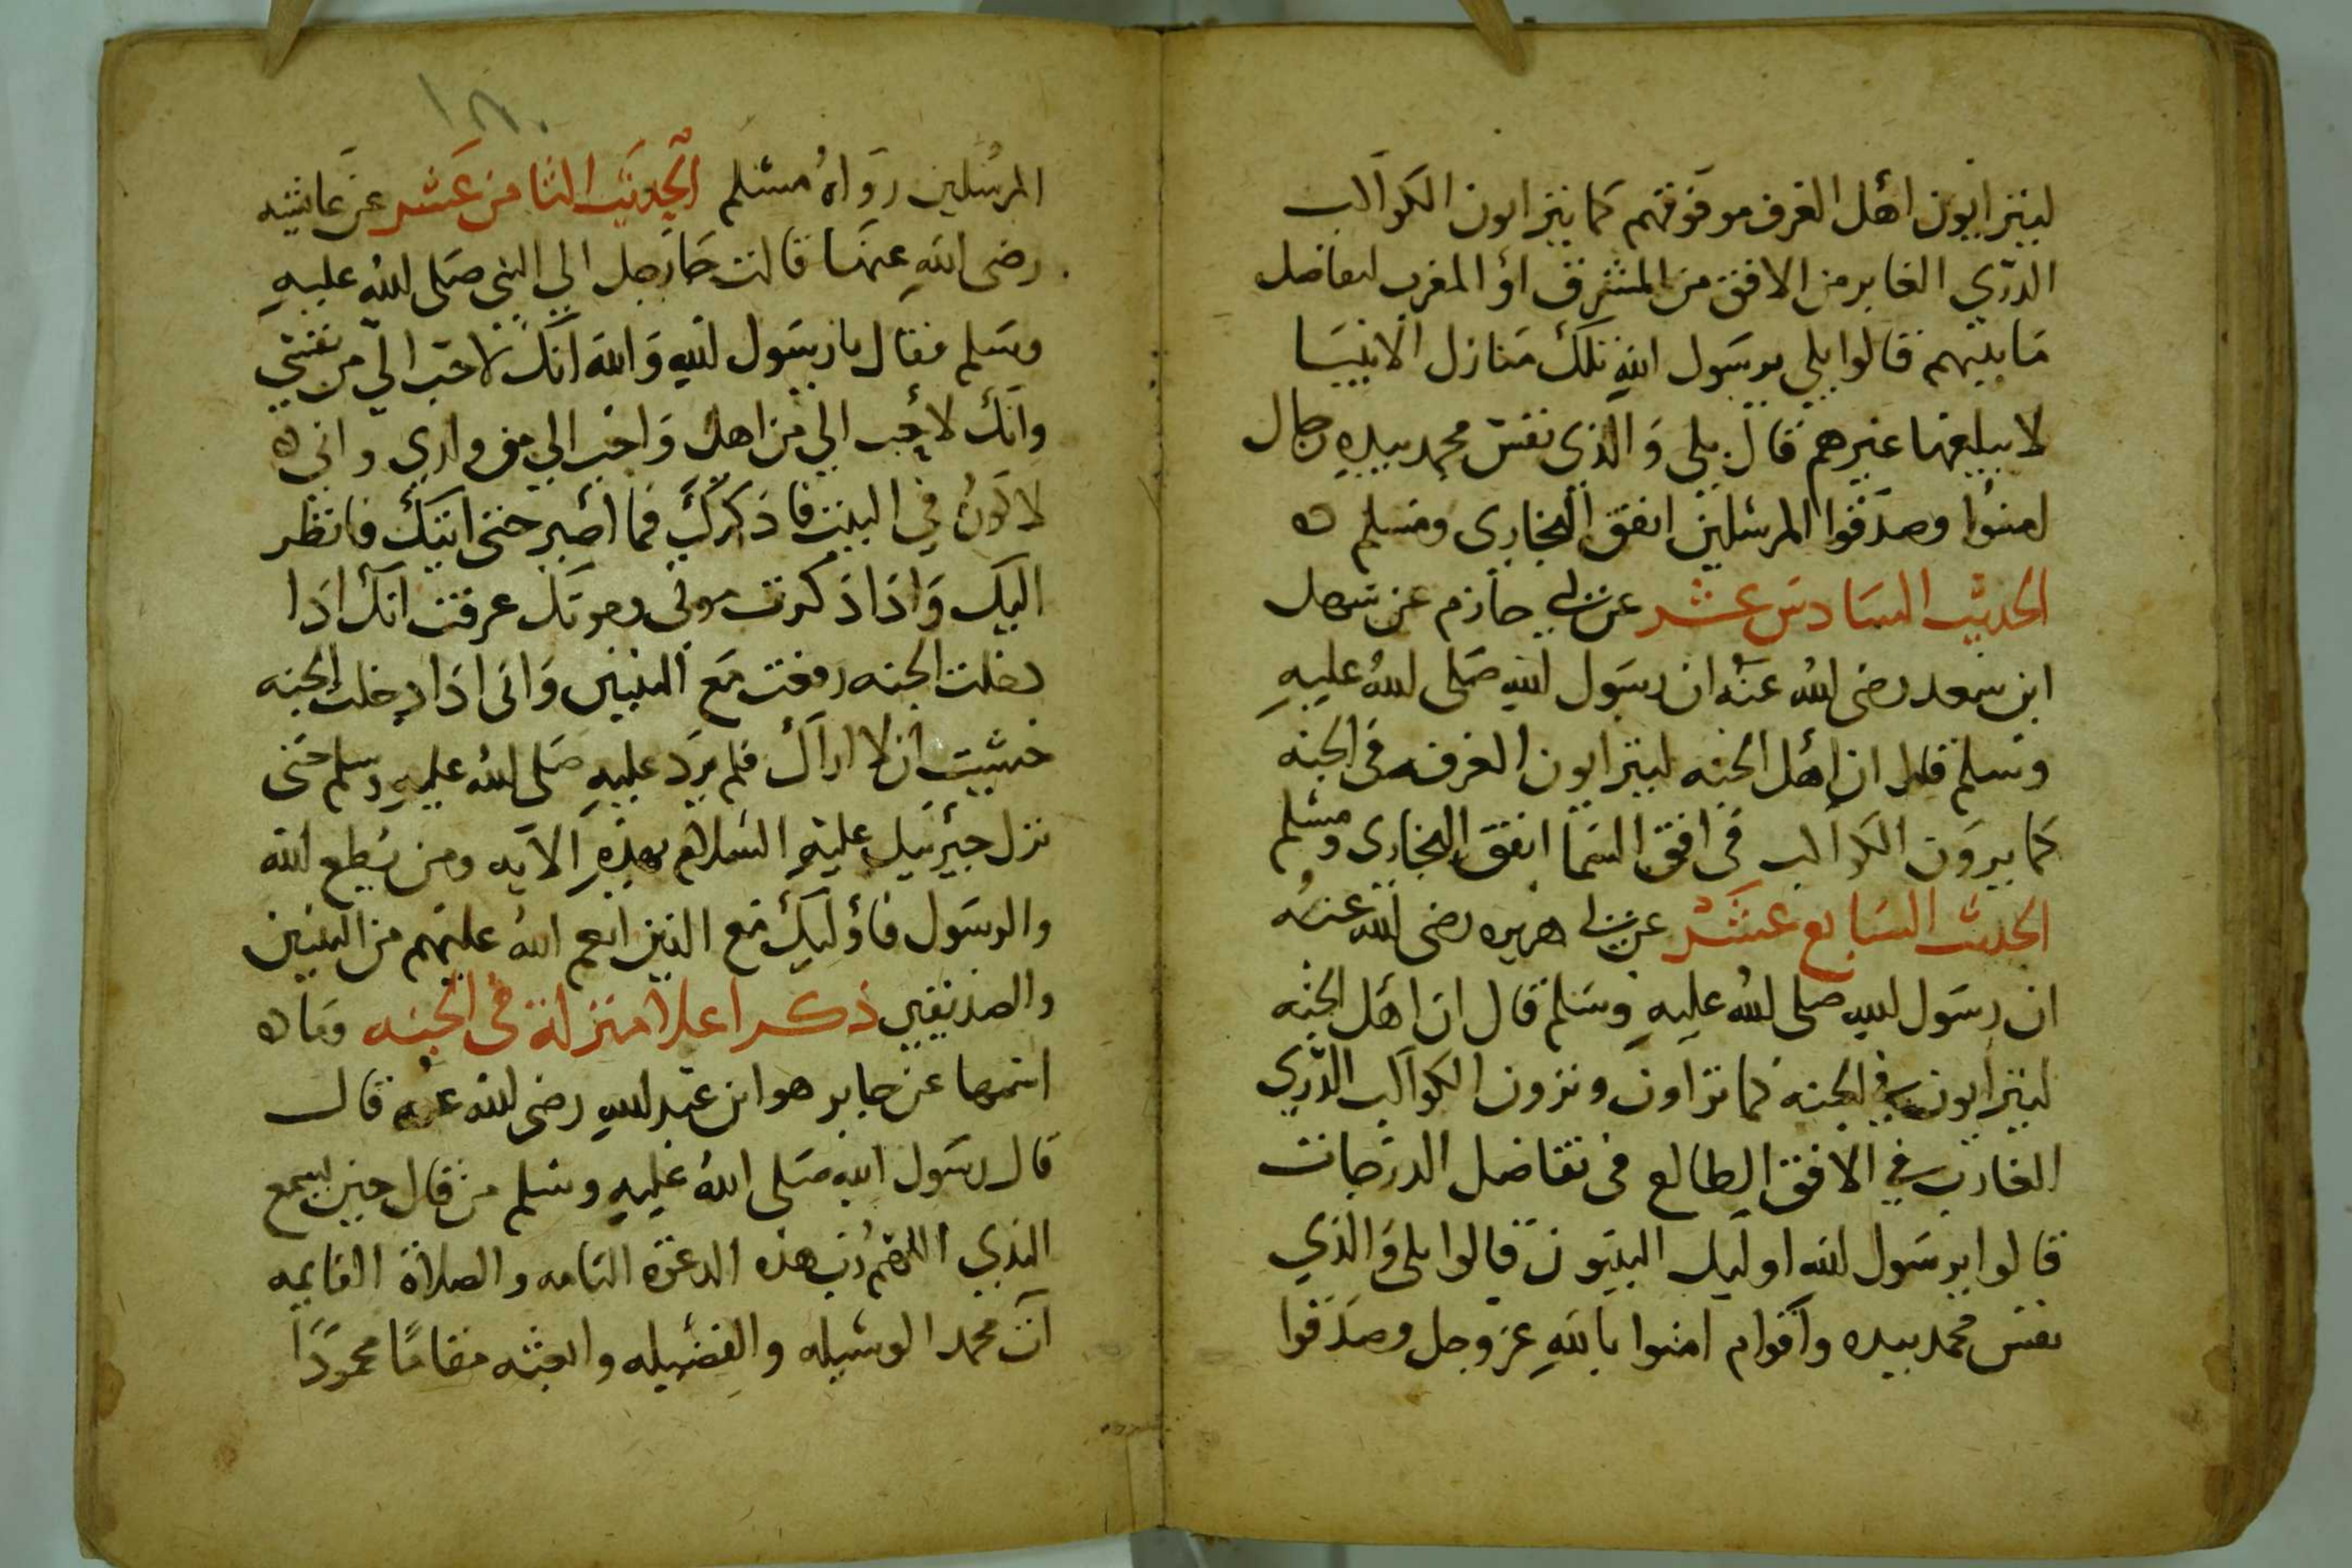 ليتراىون اهل الغرف من فوقهم كما يتراىون الكواكب
الدري الغابر من الافق من المشرق او المغرب لتفاضل
ما بينهم قالوا بلى يرسول الله تلك منازل الانبيا
لا يبلغها غيرهم قال بلى والذي نفس محمد بيده رجال
امنوا وصدقوا المرسلين اتفق البخارى ومسلم ه
الحديث السادس عشر عن ابي حازم عن سهل
ابن سعد رضى الله عنه ان رسول الله صلى الله عليه
وسلم قال ان اهل الجنه ليتراىون الغرف فى الجنه
كما يرون الكواكب فى افق السما اتفق البخارى ومسلم
الحديث السابع عشر عن ابي هريره رضى الله عنه
ان رسول الله صلى الله عليه وسلم قال ان اهل الجنه
ليتراىون في الجنه كما تراون وترون الكواكب الدري
الغارب في الافق الطالع فى تفاضل الدرجات
قالوا يرسول الله اوليك النبيون قالوا بلى والذي
نفس محمد بيده واقوام امنوا بالله عز وجل وصدقوا
١٨٠
المرسلين رواه مسلم الحديث الثامن عشر عن عائشه
رضى الله عنها قالت جا رجل الي النبي صلى الله عليه
وسلم فقال يا رسول الله والله انك لاحب الي من نفسي
وانك لاحب الي من اهلى واحب الي من ولدي واني ه
لاكون في البيت فاذكرك فما اصبر حتى اتيك فانظر
اليك واذا ذكرت موتى وموتك عرفت انك اذا
دخلت الجنه رفعت مع النبيين وانى اذا دخلت الجنه
خشيت ان لا اراك فلم يرد عليه صلى الله عليه وسلم حتى
نزل جبرئيل عليه السلام بهذه الايه ومن يطع الله
والرسول فاؤليك مع الذين انعم الله عليهم من النبيين
والصديقين ذكر اعلا منزلة فى الجنه وما ه
اسمها عن جابر هو ابن عبد الله رضى الله عنه قال
قال رسول الله صلى الله عليه وسلم من قال حين يسمع
الندي اللهم رب هذه الدعوة التامه والصلاة القايمه
آت محمد الوسيله والفضيله وابعثه مقامًا محمودًا